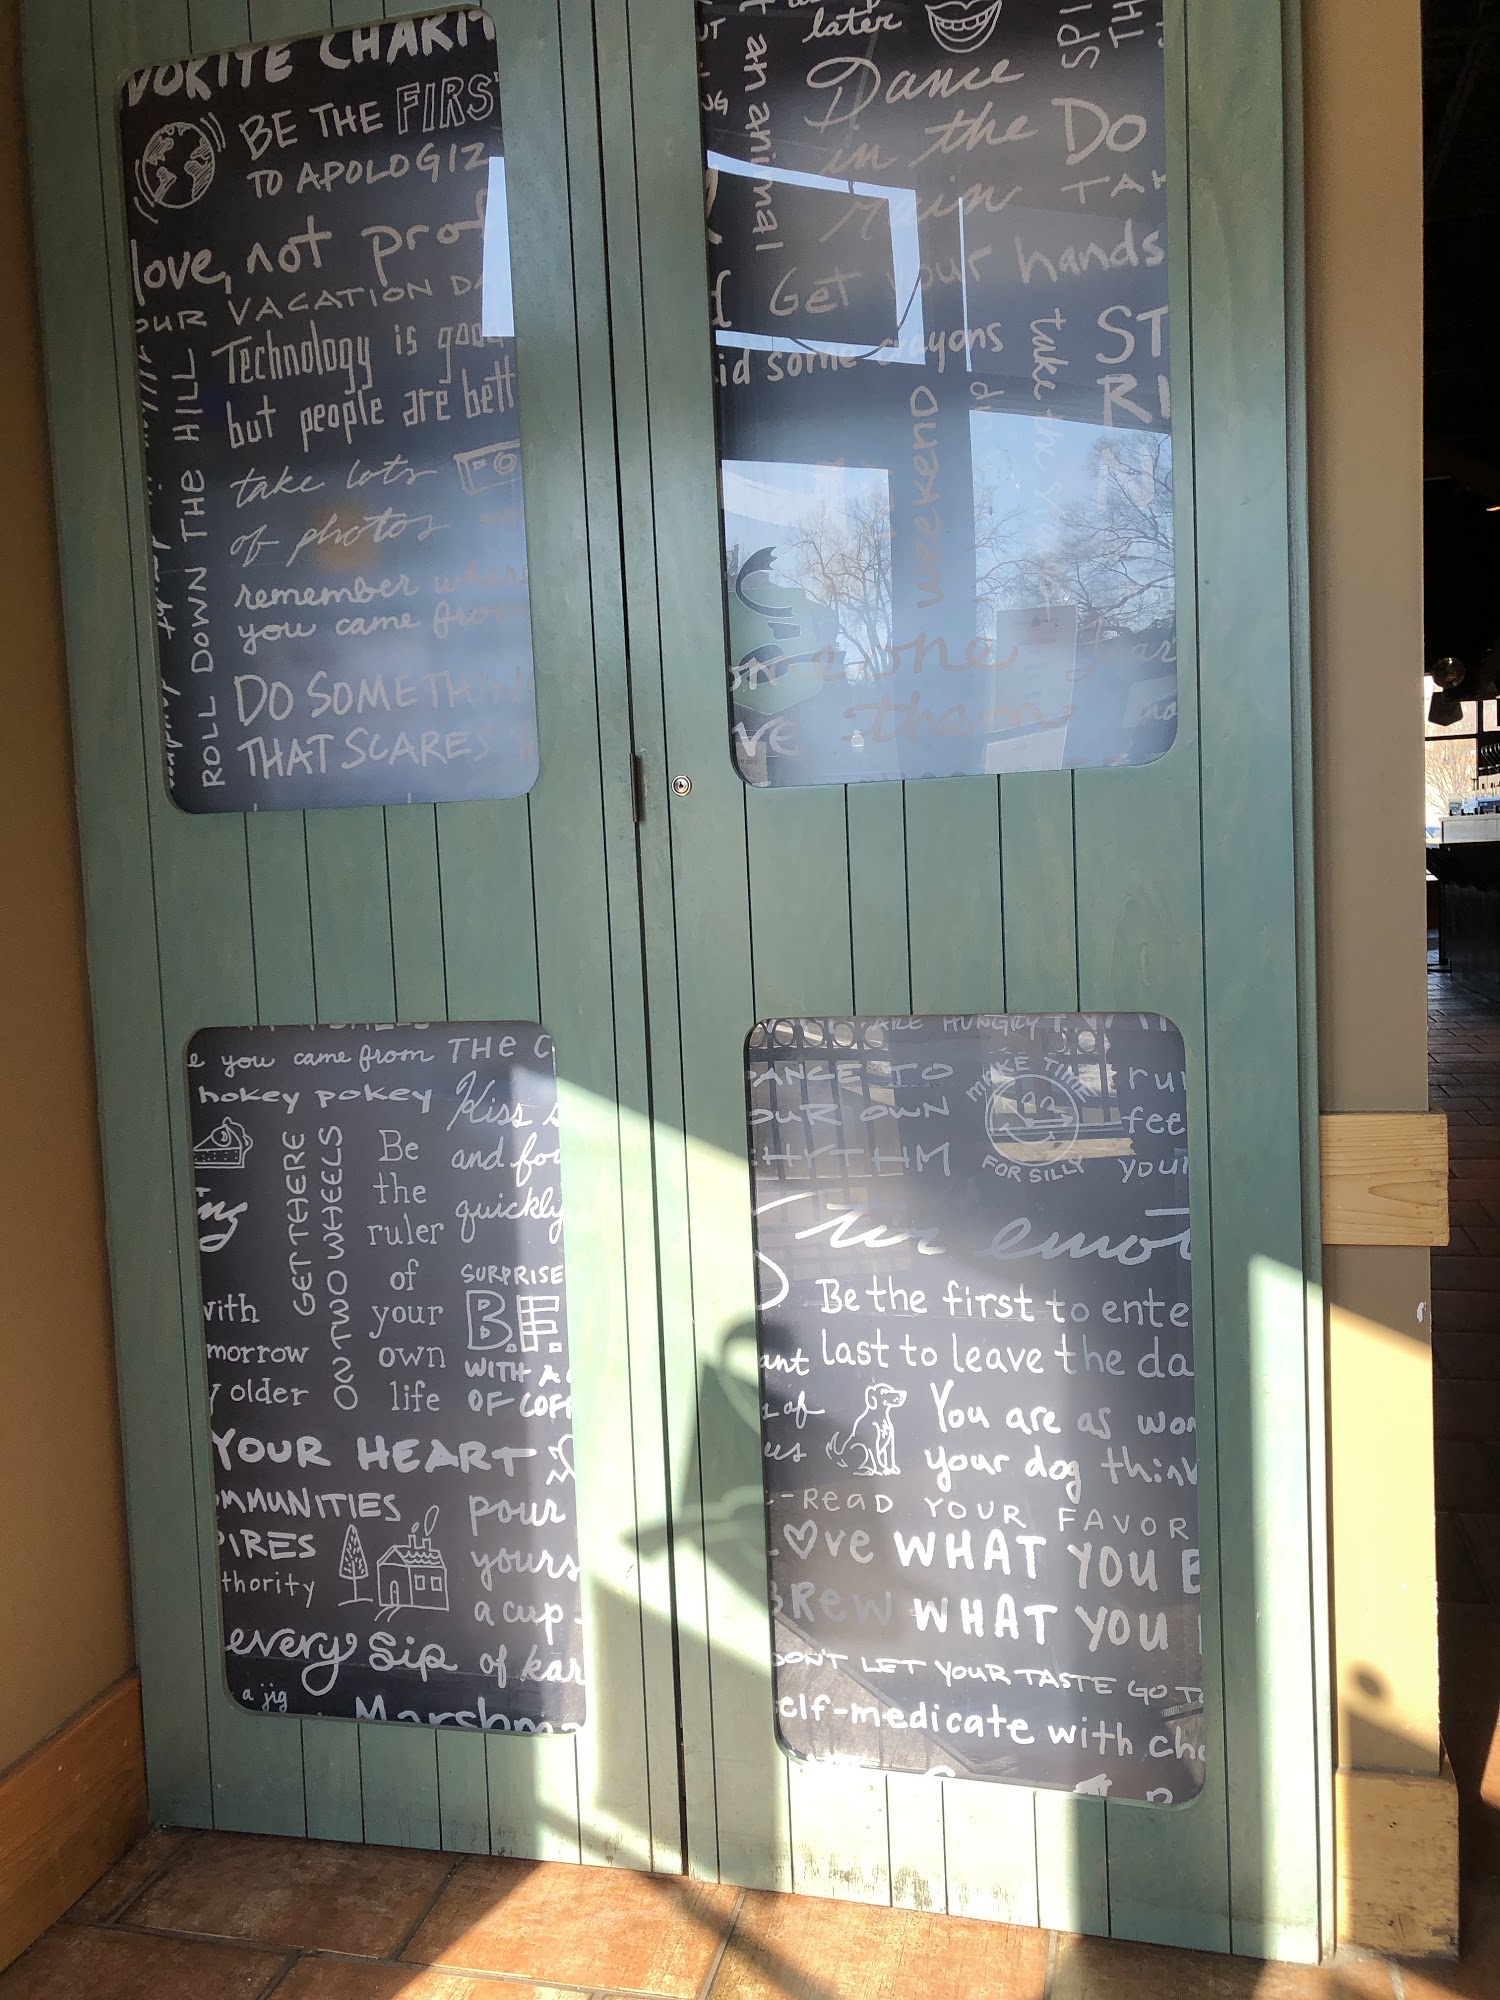 CHARIT
BE THE FIRS
TO APOLOGIZ
love, not prof
OUR VACATION DA
Technology is good
but people are bett
ROLL DOWN THE HILL
take lots
of photos
remember where
you came from
DO SOMETHIN
THAT SCARES
later
an animal
Dance
in the
rain
Do
TAK
Get your hands
some crayons
weekend
take the
ST
RI
one
ve them
e you came from THE C
hokey pokey
Kiss s
and for
quickly
GET THERE
ON TWO WHEELS
Be
the
ruler
of
your
own
life
SURPRISE
B.F.
WITH A C
OF COFF
with
morrow
older
YOUR HEART
MMUNITIES
PIRES
thority
pour
yours
a cup
of kar
every sip
a jig
Marshma
ARE HUNGRY
DANCE TO
OUR OWN
RHYTHM
MAKE TIME
FOR SILLY
rul
fee
your
Stir emot
Be the first to ente
last to leave the da
ant
of
us
You are as won
your dog think
READ YOUR FAVOR
LOVE WHAT YOU B
BREW WHAT YOU
DON'T LET YOUR TASTE GO TO
elf-medicate with cho